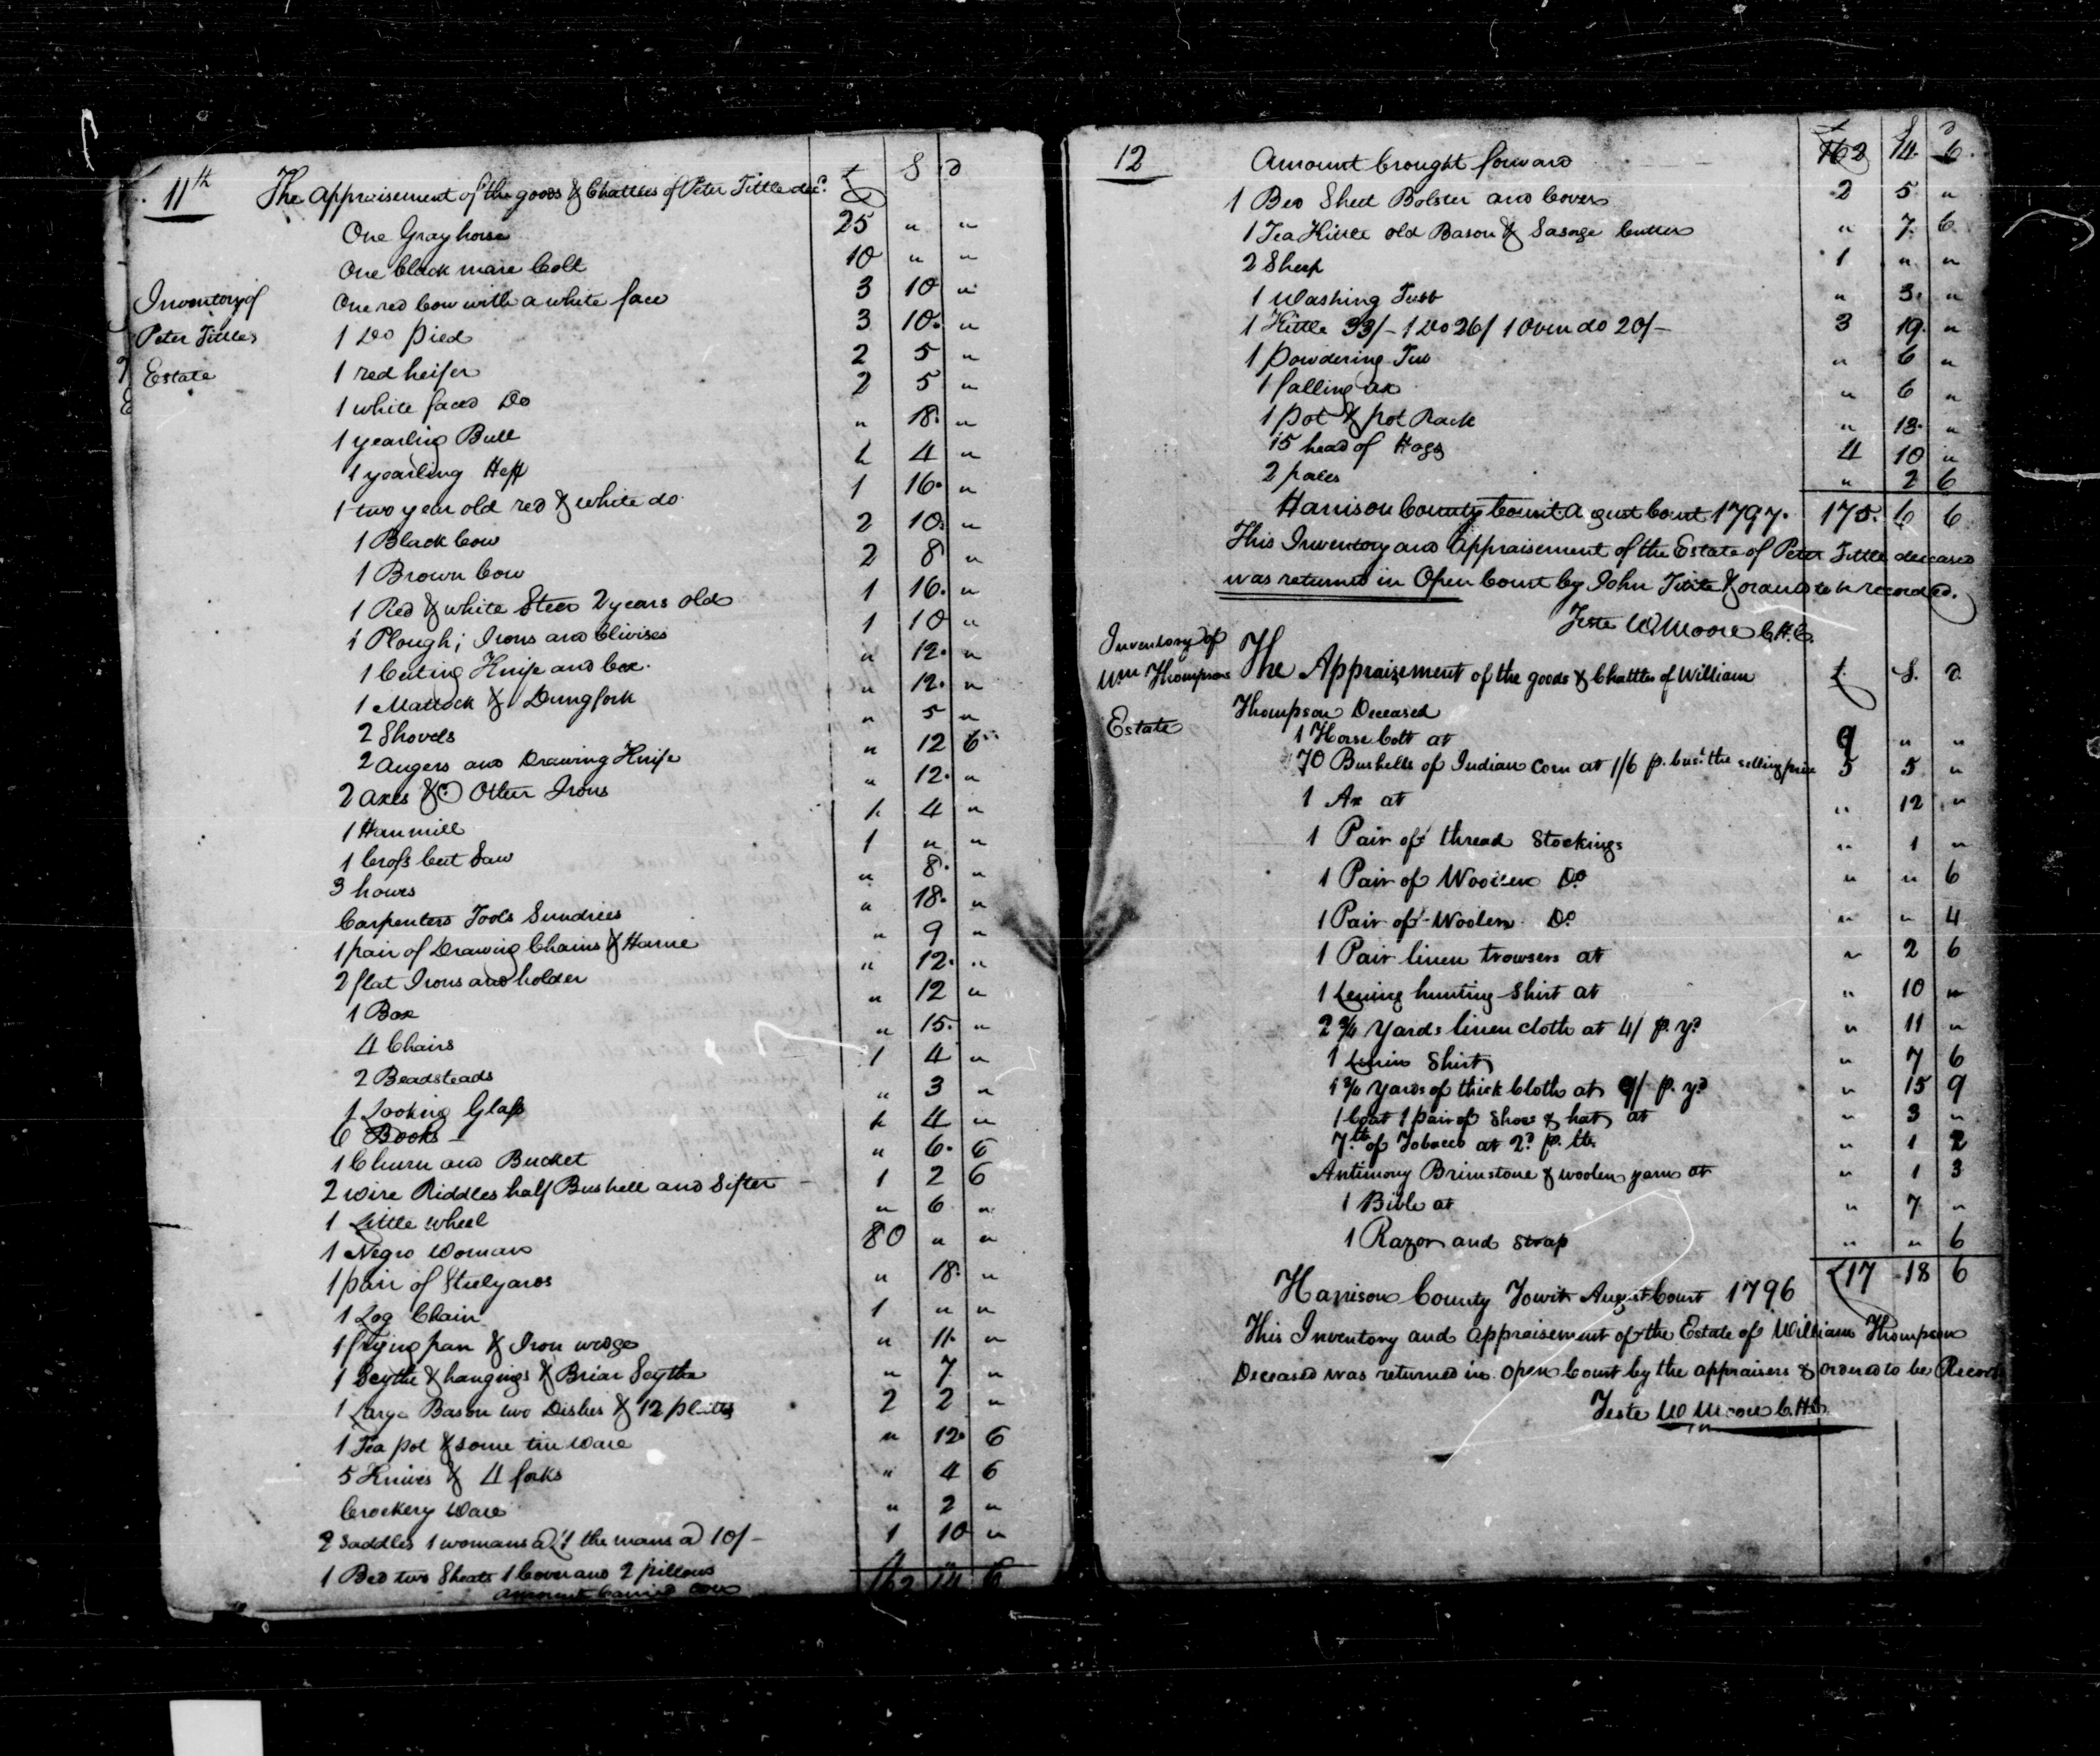 11th The Appraisement of the goods & Chattles of Peter Tittle decd. £ S D
One Gray horse 25 " "
One black mare Colt 10 " "
Inventory of
Peter Tittles
Estate
One red Cow with a white face 3 10 "
1 Do pied 3 10 "
1 red heifer 2 5 "
1 white faced Do 2 5 "
1 yearling Bull " 18 "
1 yearling Heff 1 4 "
1 two year old red & white do 1 16 "
1 Black Cow 2 10 "
1 Brown Cow 2 8 "
1 Red & white Steer 2 years old 1 16 "
1 Plough; Irons and Clivises 1 10 "
1 Cuting Knife and box " 12 "
1 Mattock & Dungfork " 12 "
2 Shovels " 5 "
2 Augers and Drawing Knife " 12 6
2 Axes &C Other Irons " 12 "
1 Hanmill 1 4 "
1 Cross Cut Saw 1 " "
3 hows " 8 "
Carpenters Tools Sundries " 18 "
1 pair of Drawing Chains & Hame " 9 "
2 flat Irons and holder " 12 "
1 Box " 12 "
4 Chairs " 15 "
2 Beadsteads 1 4 "
1 Looking Glass " 3 "
6 Books 1 4 "
1 Churn and Bucket " 6 6
2 wire Riddles half Bushell and Sifter 1 2 6
1 Little wheel " 6 "
1 Negro Woman 80 " "
1 pair of Steelyards " 18 "
1 Log Chain 1 " "
1 frying pan & Iron wedge " 11 "
1 Scythe & hangings & Briar Scythe " 7 "
1 Large Bason two Dishes & 12 plates 2 2 "
1 Tea pot & some tin ware " 12 6
5 Knives & 4 forks " 4 6
Crockery Ware " 2 "
2 Saddles 1 womans a £1 the mans a 10/- 1 10 "
1 Bed two Sheats 1 Cover and 2 pillows
amount Carried over 162 14 6
12 Amount brought forward 162 14 6
1 Bed Sheet Bolster and Cover 2 5 "
1 Tea Kittle old Bason & Sasage Cutter " 7 6
2 Sheep 1 " "
1 Washing Tubb " 3 "
1 Kittle 33/- 1 Do 26/ 1 Oven do 20/- 3 19 "
1 powdering Tub " 6 "
1 falling ax " 6 "
1 pot & pot Rack " 18 "
15 head of Hogs 4 10 "
2 pales " 2 6
Harrison County Court August Court 1797. 175 6 6
This Inventory and Appraisement of the Estate of Peter Tittle deceased
was returned in Open Court by John Tittle & orderd to be recorded.
Teste W Moore C.H.C.
Inventory of
Wm Thompsons
Estate
The Appraizement of the goods & Chattles of William £ S. D.
Thompson Deceased
1 Horse Colt at 9 " "
70 Bushells of Indian Corn at 1/6 p. bus. the selling price 5 5 "
1 Ax at " 12 "
1 Pair of thread Stockings " 1 "
1 Pair of Woolen Do " " 6
1 Pair of Woolen Do " " 4
1 Pair linen trowsers at " 2 6
1 Lening hunting Shirt at " 10 "
2 3/4 Yards linen cloth at 4/ p. yd " 11 "
1 Linin Shirt " 7 6
1 3/4 Yards of thick Cloth at 9/ p. yd " 15 9
1 Coat 1 pair of Shoes & hat at " 3 "
7 lb of Tobacco at 2d p. lb. " 1 2
Antimony Brimstone & woolen yarn at " 1 3
1 Bible at " 7 "
1 Razor and Strap " " 6
£17 18 6
Harrison County Towit August Court 1796
This Inventory and Appraisement of the Estate of William Thompson
Deceased was returned in open Court by the appraisers & ordered to be Record
Teste W Moore C.H.C.